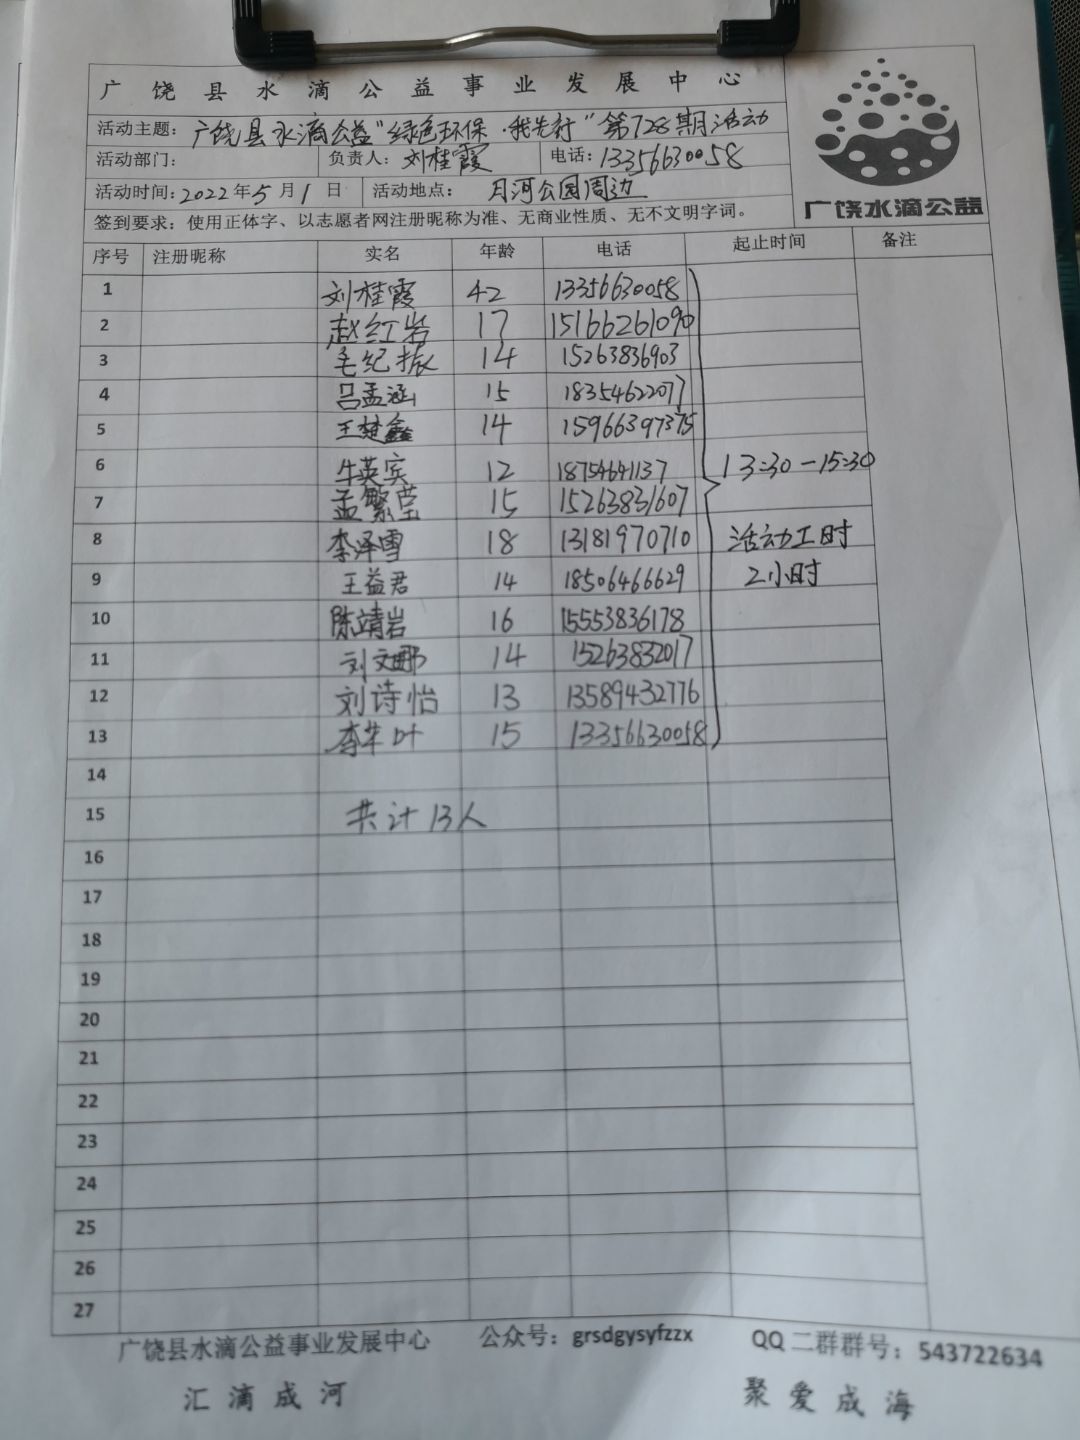 广饶县水滴公益事业发展中心
活动主题：广饶县水滴公益"绿色环保·我先行"第728期活动
活动部门： 负责人：刘桂霞 电话：13356630058
活动时间：2022年5月1日 活动地点： 月河公园周边
签到要求：使用正体字、以志愿者网注册昵称为准、无商业性质、无不文明字词。
广饶水滴公益
序号 注册昵称 实名 年龄 电话 起止时间 备注
1 刘桂霞 42 13356630058
2 赵红岩 17 15166261090
3 毛纪振 14 15263836903
4 吕孟涵 15 18354622077
5 王楚鑫 14 15966397375
6 牛英宾 12 18754641137 13:30-15:30
7 孟繁莹 15 15263831607
8 李泽雪 18 13181970710 活动工时
9 王益君 14 18506466629 2小时
10 陈靖岩 16 15553836178
11 刘文娜 14 15263832017
12 刘诗怡 13 13589432776
13 李 叶 15 13356630058
14
15 共计13人
16
17
18
19
20
21
22
23
24
25
26
27
广饶县水滴公益事业发展中心 公众号：grsdgysyfzzx QQ二群群号：543722634
汇滴成河 聚爱成海